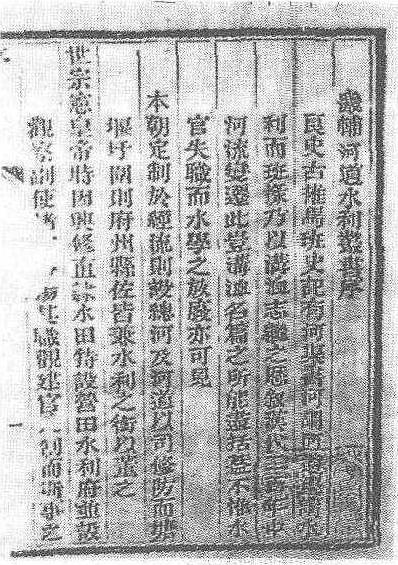 畿輔河道水利叢書序
良史古推馬班史記有河渠書河謂河渠謂水
利而班椽乃以溝洫志繼之歷叙漢代三百年中
河流變遷此豈溝洫名篇之所能蓋括蓋不惟水
官失職而水學之放廢亦可見
本朝定制於經流則設總河及河道以司修防而塘
堰圩閘則府州縣佐皆兼水利之銜以董之
世宗憲皇帝時因興修直隸水田特設營田水利府並設
觀察副使 職觀建官 利而諸事之